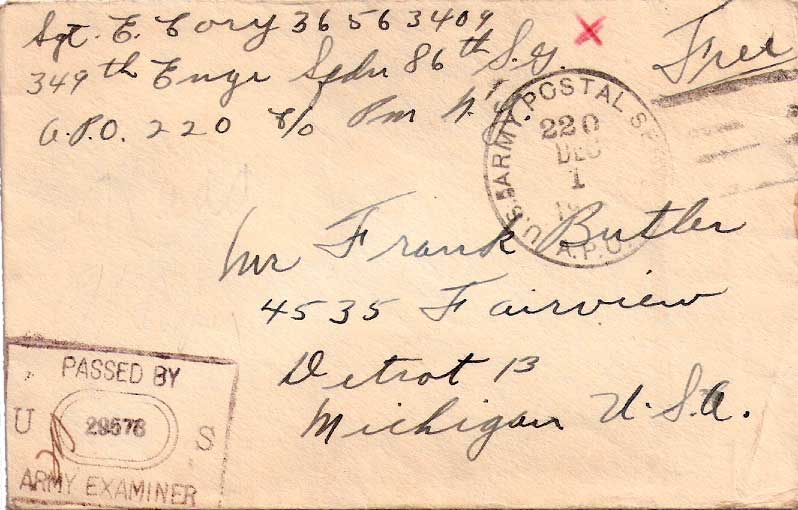 Sgt. E. Cory 36563409
349th Engr Sqdn 86th S.G.
A.P.O. 220 c/o Pm N.Y.
Free
U.S. ARMY POSTAL
220
DEC
1
A.P.O.
Mr Frank Butler
4535 Fairview
Detroit 13
Michigan U.S.A.
PASSED BY
U 29578 S
ARMY EXAMINER